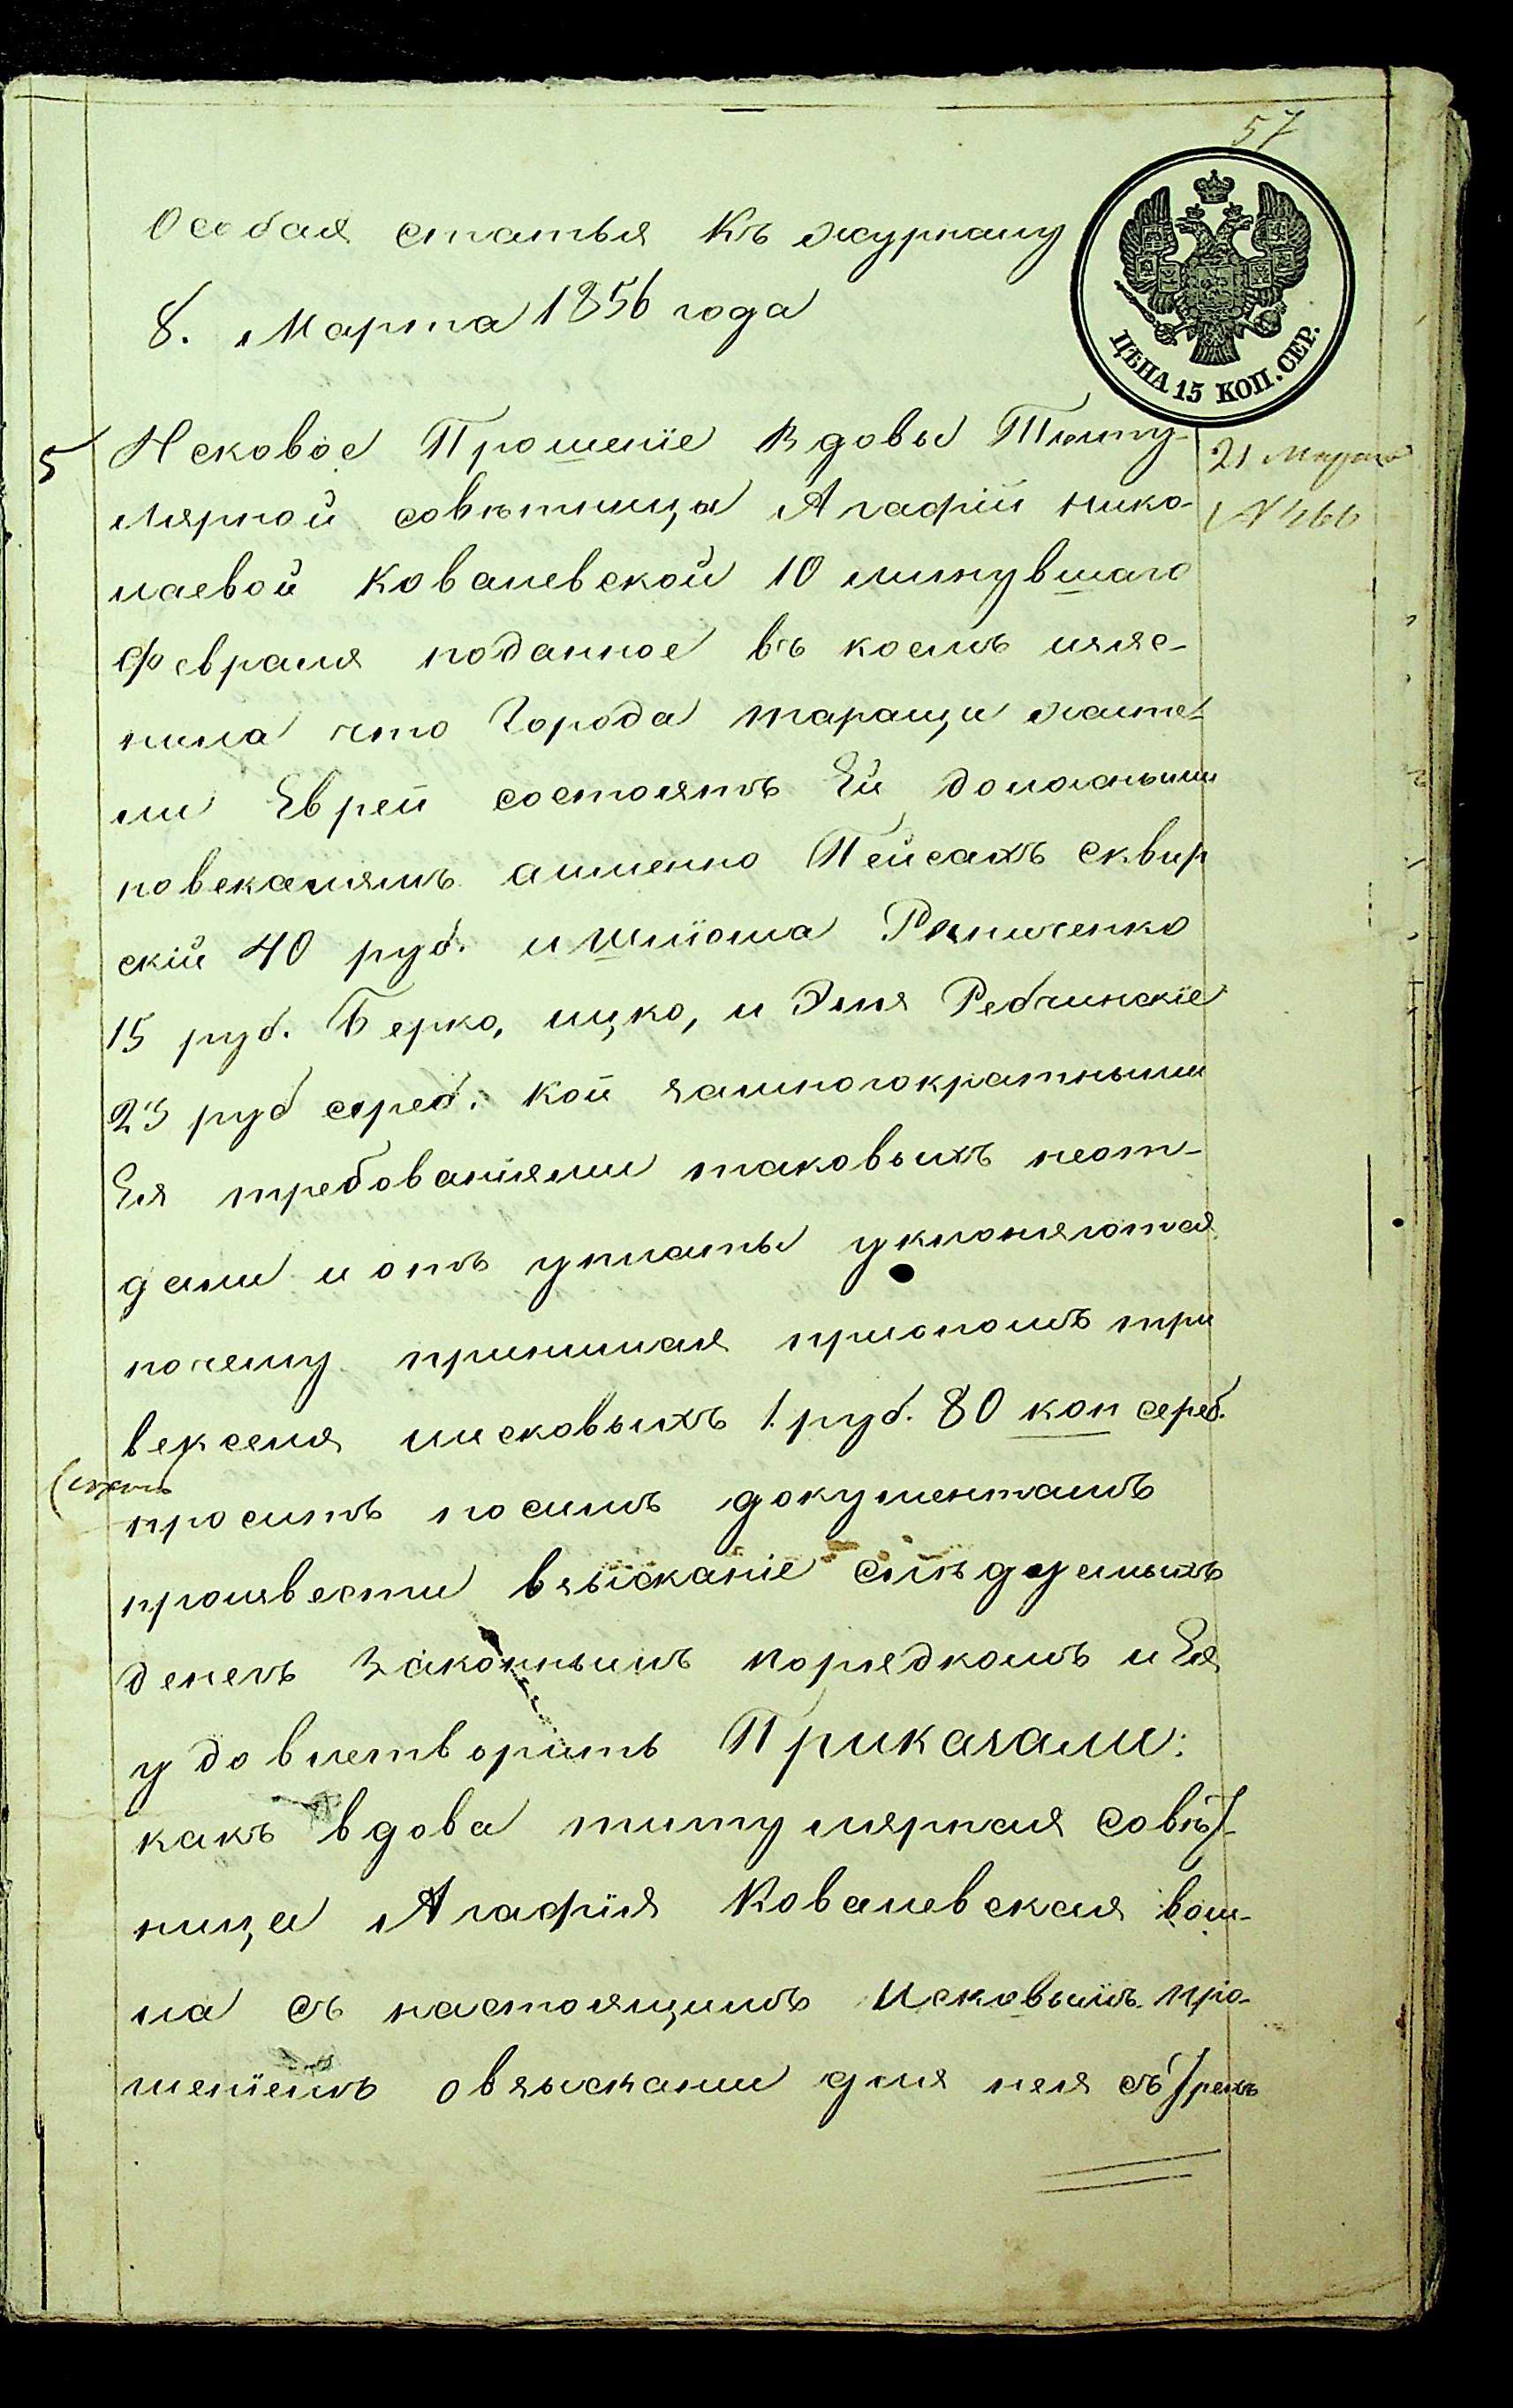 57
Особая статья Къ журналу
8. Марта 1856 года
ЦѢНА 15 КОП. СЕР.
5 Исковое Прошеніе Вдовы Титу-
21 Марта
лярной совѣтницы Агафіи Нико-
№ 466
лаевой Ковалевской 10 минувшаго
Февраля поданное въ коемъ изяс-
нила что Города таращи жите-
ли Евреи состоятъ Ей должными
повекселямъ аименно Пейсахъ сквир
скій 40 руб. и Шліома
15 руб. Берко, ицко, и Эля Ребчинскіе
23 руб сереб. Кои замногократными
Ея требованіями таковыхъ неот-
дали и отъ уплаты уклоняются
почему принимая приономъ три
векселя иисковыхъ 1 руб. 80 коп сереб.
проситъ посимъ документамъ
произвести взысканіе слѣдуемыхъ
денегъ Законнымъ порядкомъ и Ея
удовлетворить Приказали:
какъ вдова титулярная Совѣт-
ница Агафія Ковалевская вош-
ла съ настоящимъ Исковымъ про-
шеніемъ овзыскании для нея съ трехъ